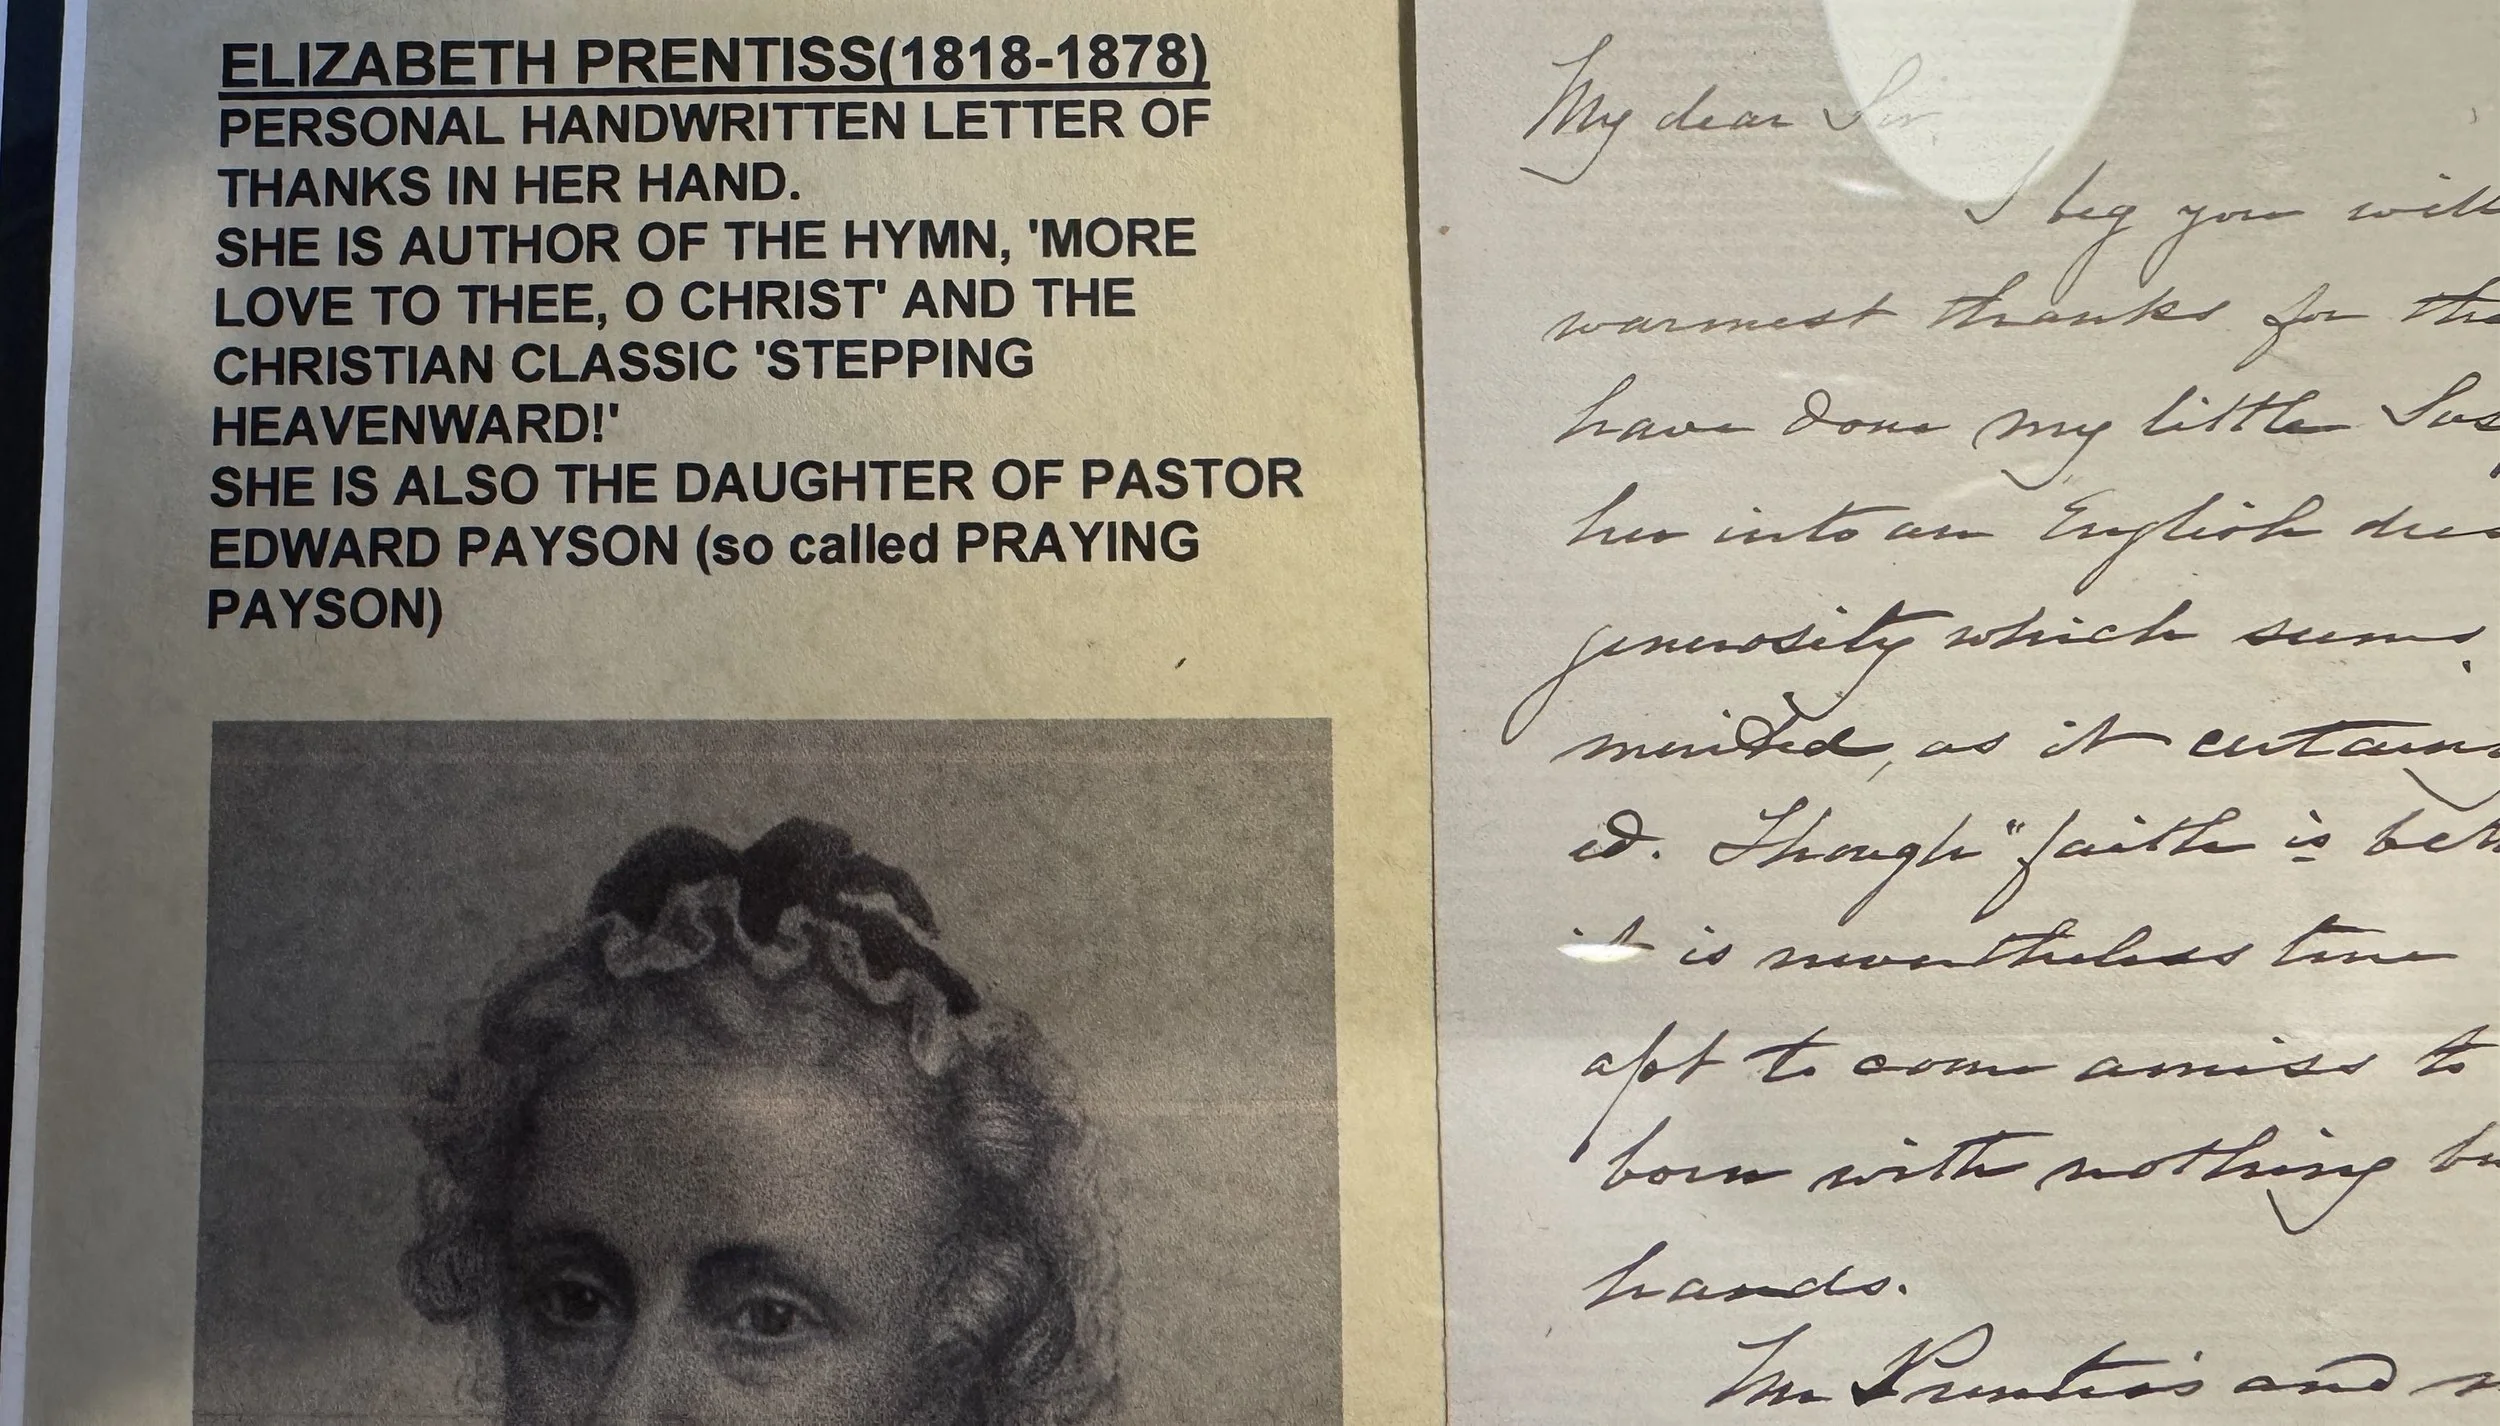 ELIZABETH PRENTISS(1818-1878)
PERSONAL HANDWRITTEN LETTER OF
THANKS IN HER HAND.
SHE IS AUTHOR OF THE HYMN, 'MORE
LOVE TO THEE, O CHRIST' AND THE
CHRISTIAN CLASSIC 'STEPPING
HEAVENWARD!'
SHE IS ALSO THE DAUGHTER OF PASTOR
EDWARD PAYSON (so called PRAYING
PAYSON)
My dear Sir,
I beg you will
warmest thanks for the
have done my little Sus
her into an English dres
generosity which seems
merited, as it certain
ed. Though "faith is bet
it is nevertheless true
apt to come amiss to
born with nothing bu
hands.
Mr Prentiss and